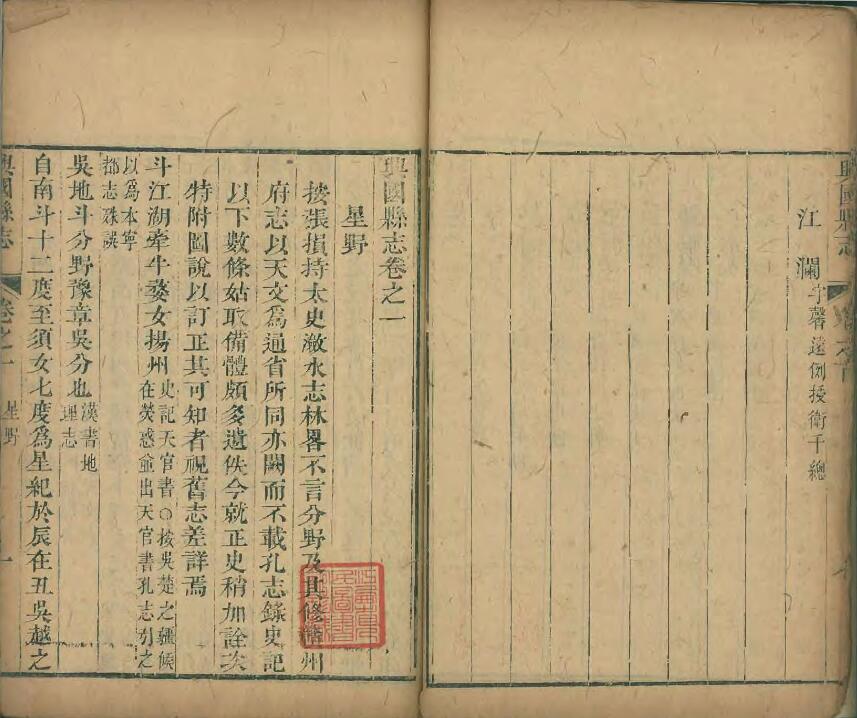 江瀾字馨遠例授衛千總
興國縣志卷之一
星野
按張損持太史瀲水志林畧不言分野及其修贛州
府志以天文爲通省所同亦闕而不載孔志錄史記
以下數條姑取備體頗多遺佚今就正史稍加詮次
特附圖說以訂正其可知者視舊志差詳焉
斗江湖牽牛婺女揚州史記天官書○按吳楚之疆候
在熒惑並出天官書孔志引之
以爲本寧
都志殊誤
吳地斗分野豫章吳分也漢書地
理志
自南斗十二度至須女七度爲星紀於辰在丑吳越之
興國縣志 卷之一 星野 一